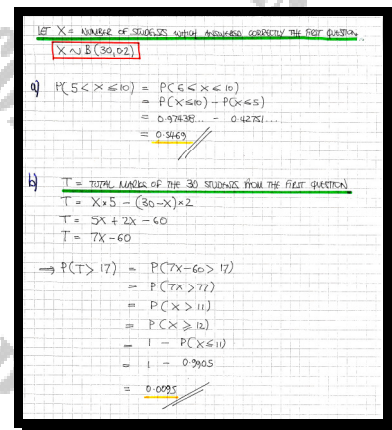 LET X = NUMBER OF STUDENTS WHICH ANSWERED CORRECTLY THE FIRST QUESTION
X ~ B(30, 0.2)
a) P(5 < X ≤ 10) = P(6 ≤ X ≤ 10)
= P(X ≤ 10) - P(X ≤ 5)
= 0.97438... - 0.42751...
= 0.5469
b) T = TOTAL MARKS OF THE 30 STUDENTS FROM THE FIRST QUESTION
T = X×5 - (30-X)×2
T = 5X + 2X - 60
T = 7X - 60
⟹ P(T > 17) = P(7X - 60 > 17)
= P(7X > 77)
= P(X > 11)
= P(X ≥ 12)
= 1 - P(X ≤ 11)
= 1 - 0.9905
= 0.0095